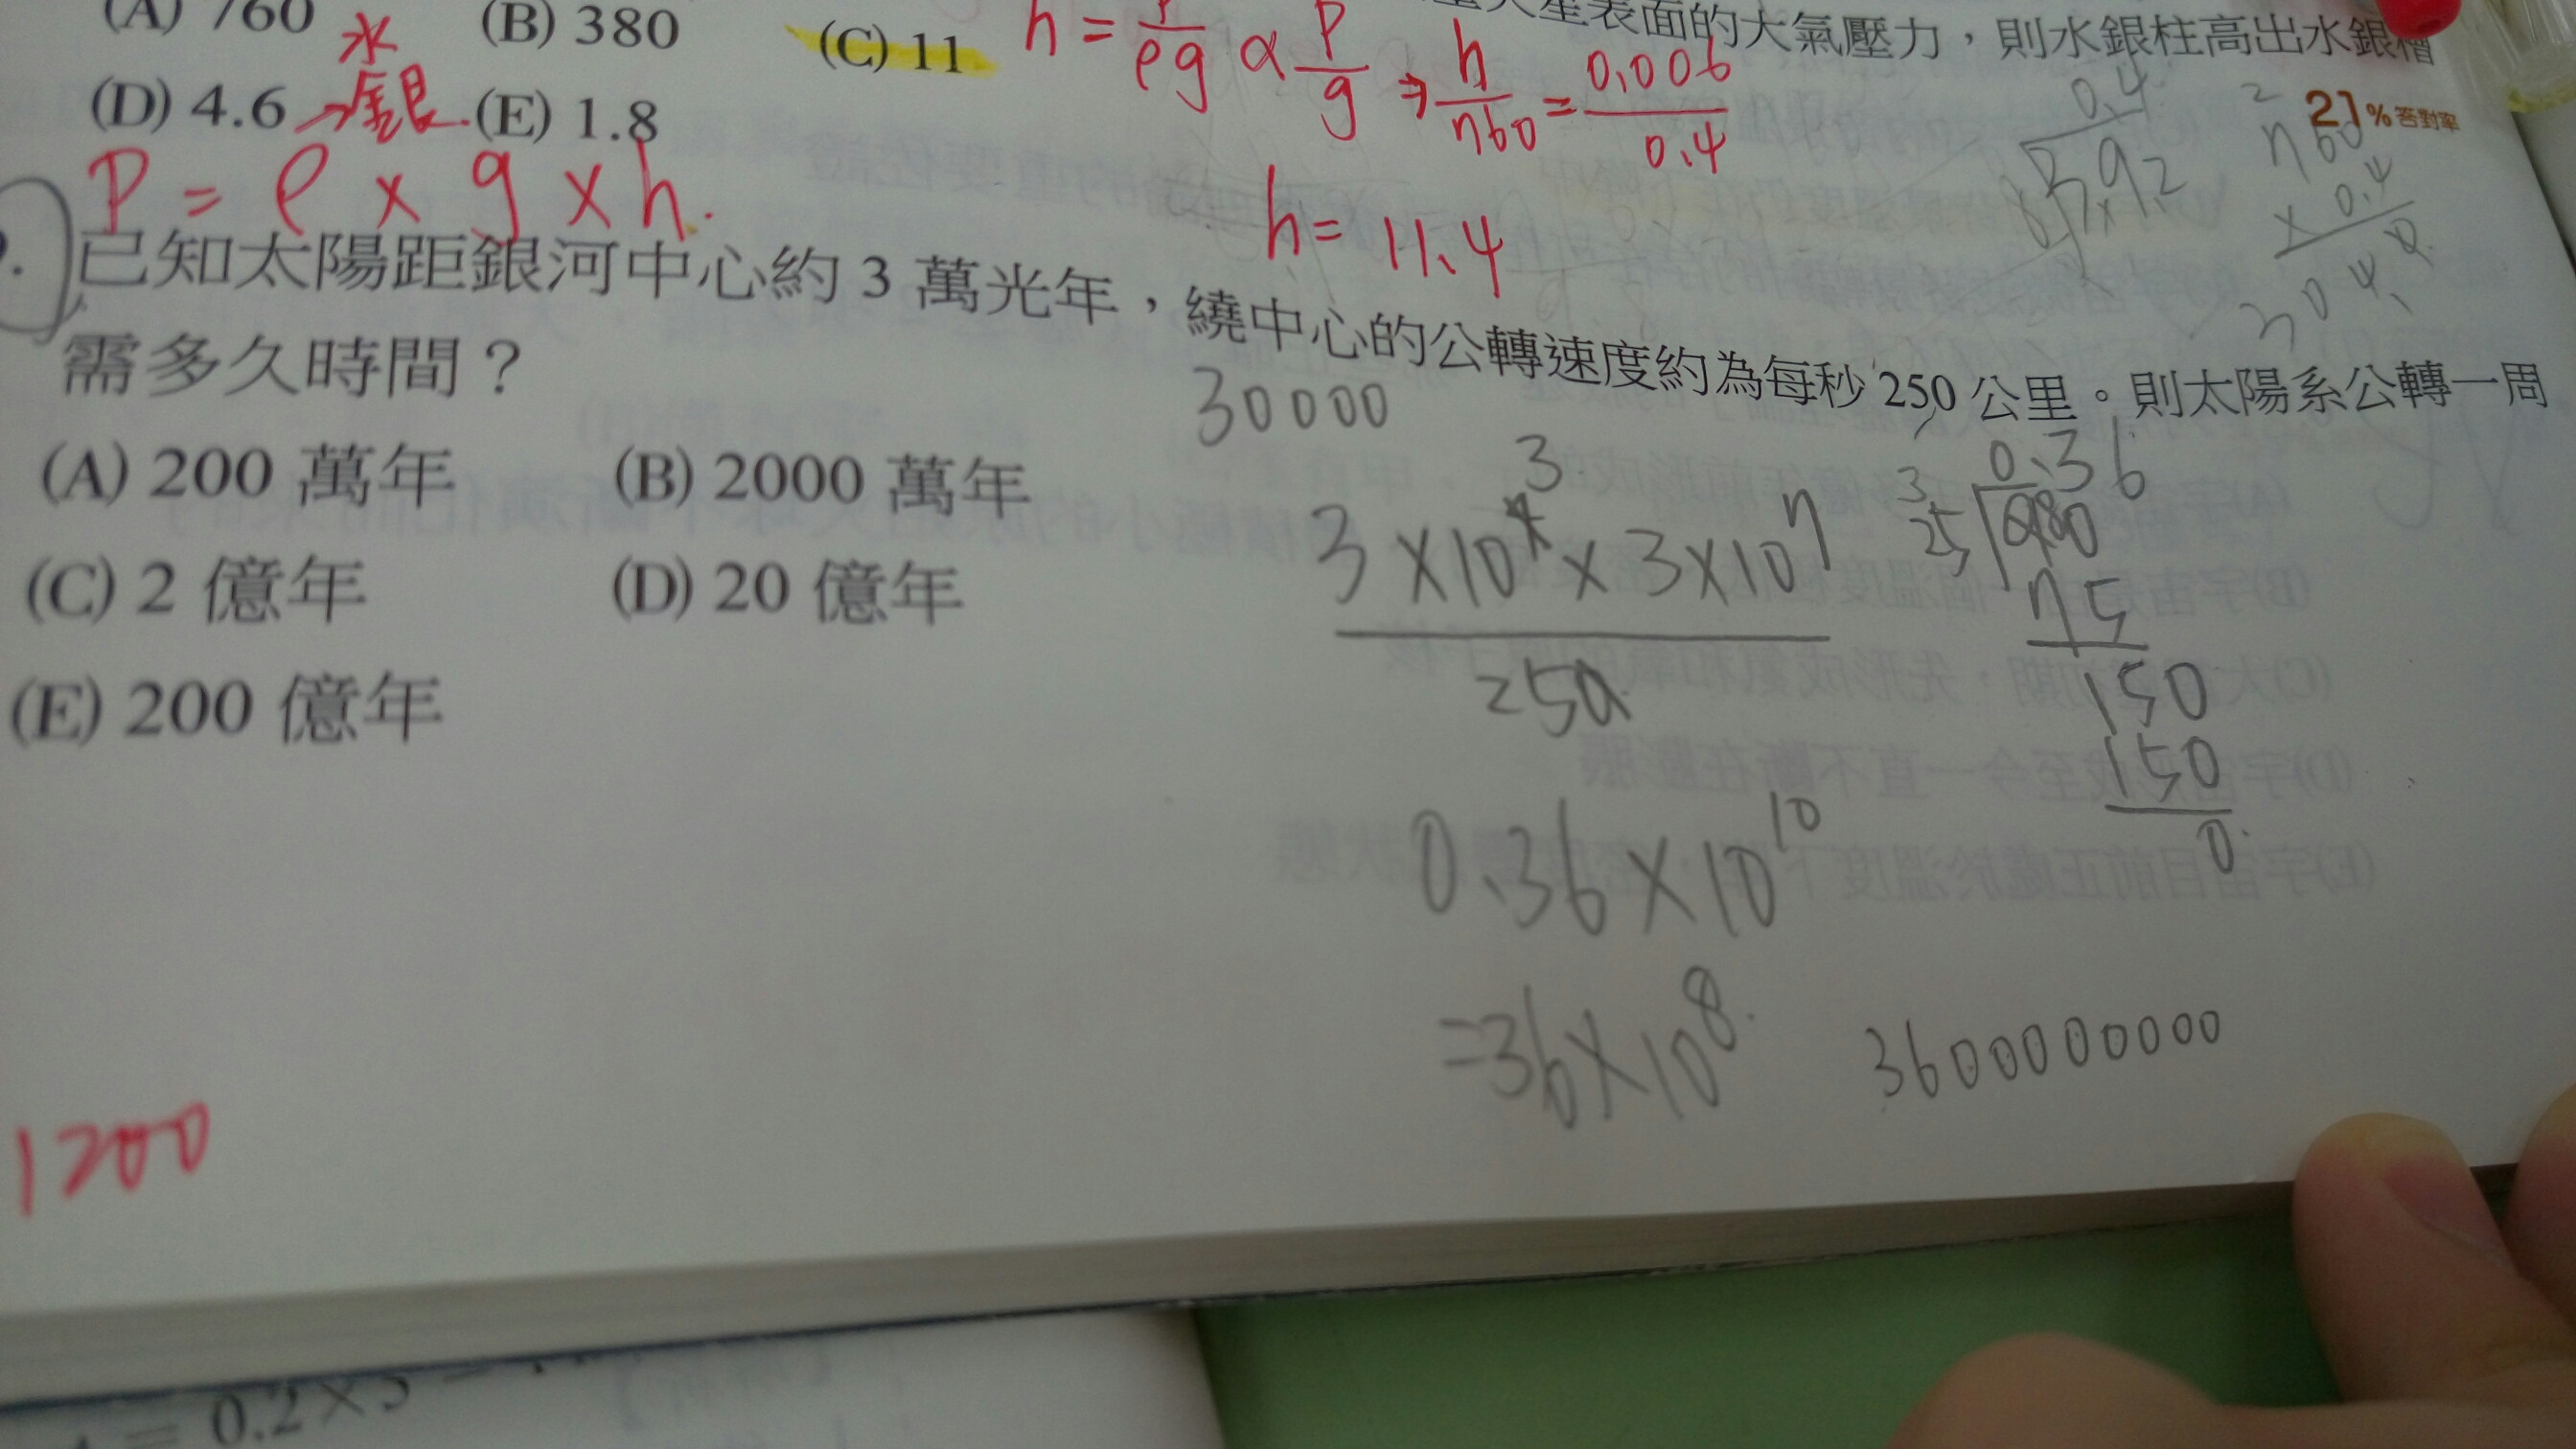 (A) 760 (B) 380 (C) 11
水
(D) 4.6 →銀 (E) 1.8
星表面的大氣壓力，則水銀柱高出水銀槽
21%答對率
h = P/ρg ∝ P/g ⇒ h/760 = 0.006/0.4
h = 11.4
P = ρ × g × h.
0.4
760
× 0.4
304.0
已知太陽距銀河中心約 3 萬光年，繞中心的公轉速度約為每秒 250 公里。則太陽系公轉一周
需多久時間？
30000
(A) 200 萬年 (B) 2000 萬年
(C) 2 億年 (D) 20 億年
(E) 200 億年
3
3×10⁴×3×10⁷
250
0.36
25
75
150
150
0
0.36×10¹⁰
=36×10⁸
3600000000
1200
= 0.2×5